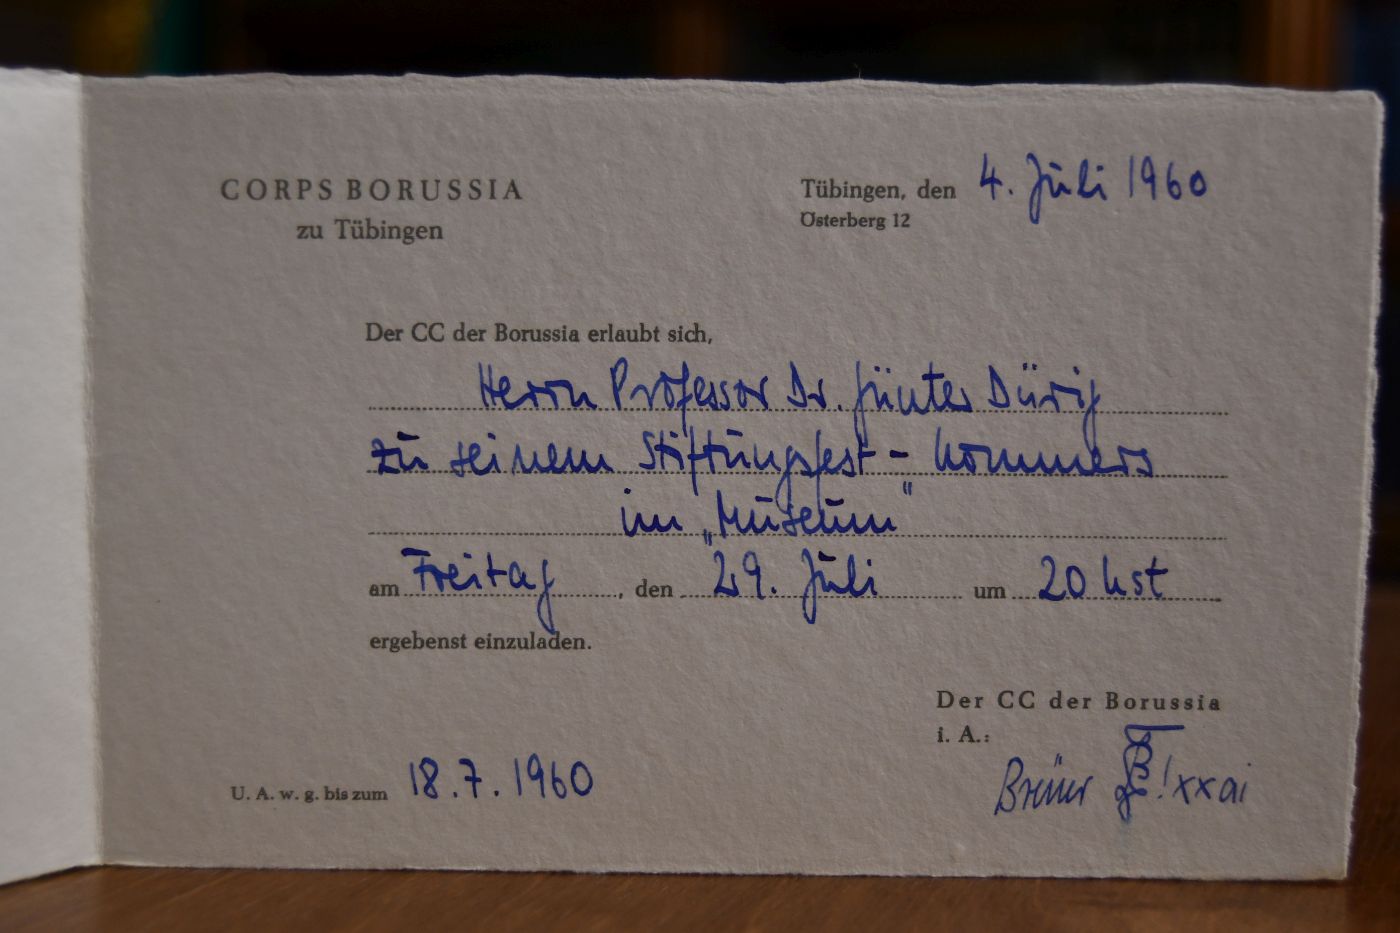 CORPS BORUSSIA
zu Tübingen
Tübingen, den 4. Juli 1960
Österberg 12
Der CC der Borussia erlaubt sich,
Herrn Professor Dr. Günter Dürig
zu seinem Stiftungsfest-Kommers
im „Museum“
am Freitag, den 29. Juli um 20 hst
ergebenst einzuladen.
Der CC der Borussia
i. A.:
xxai
U. A. w. g. bis zum 18.7.1960